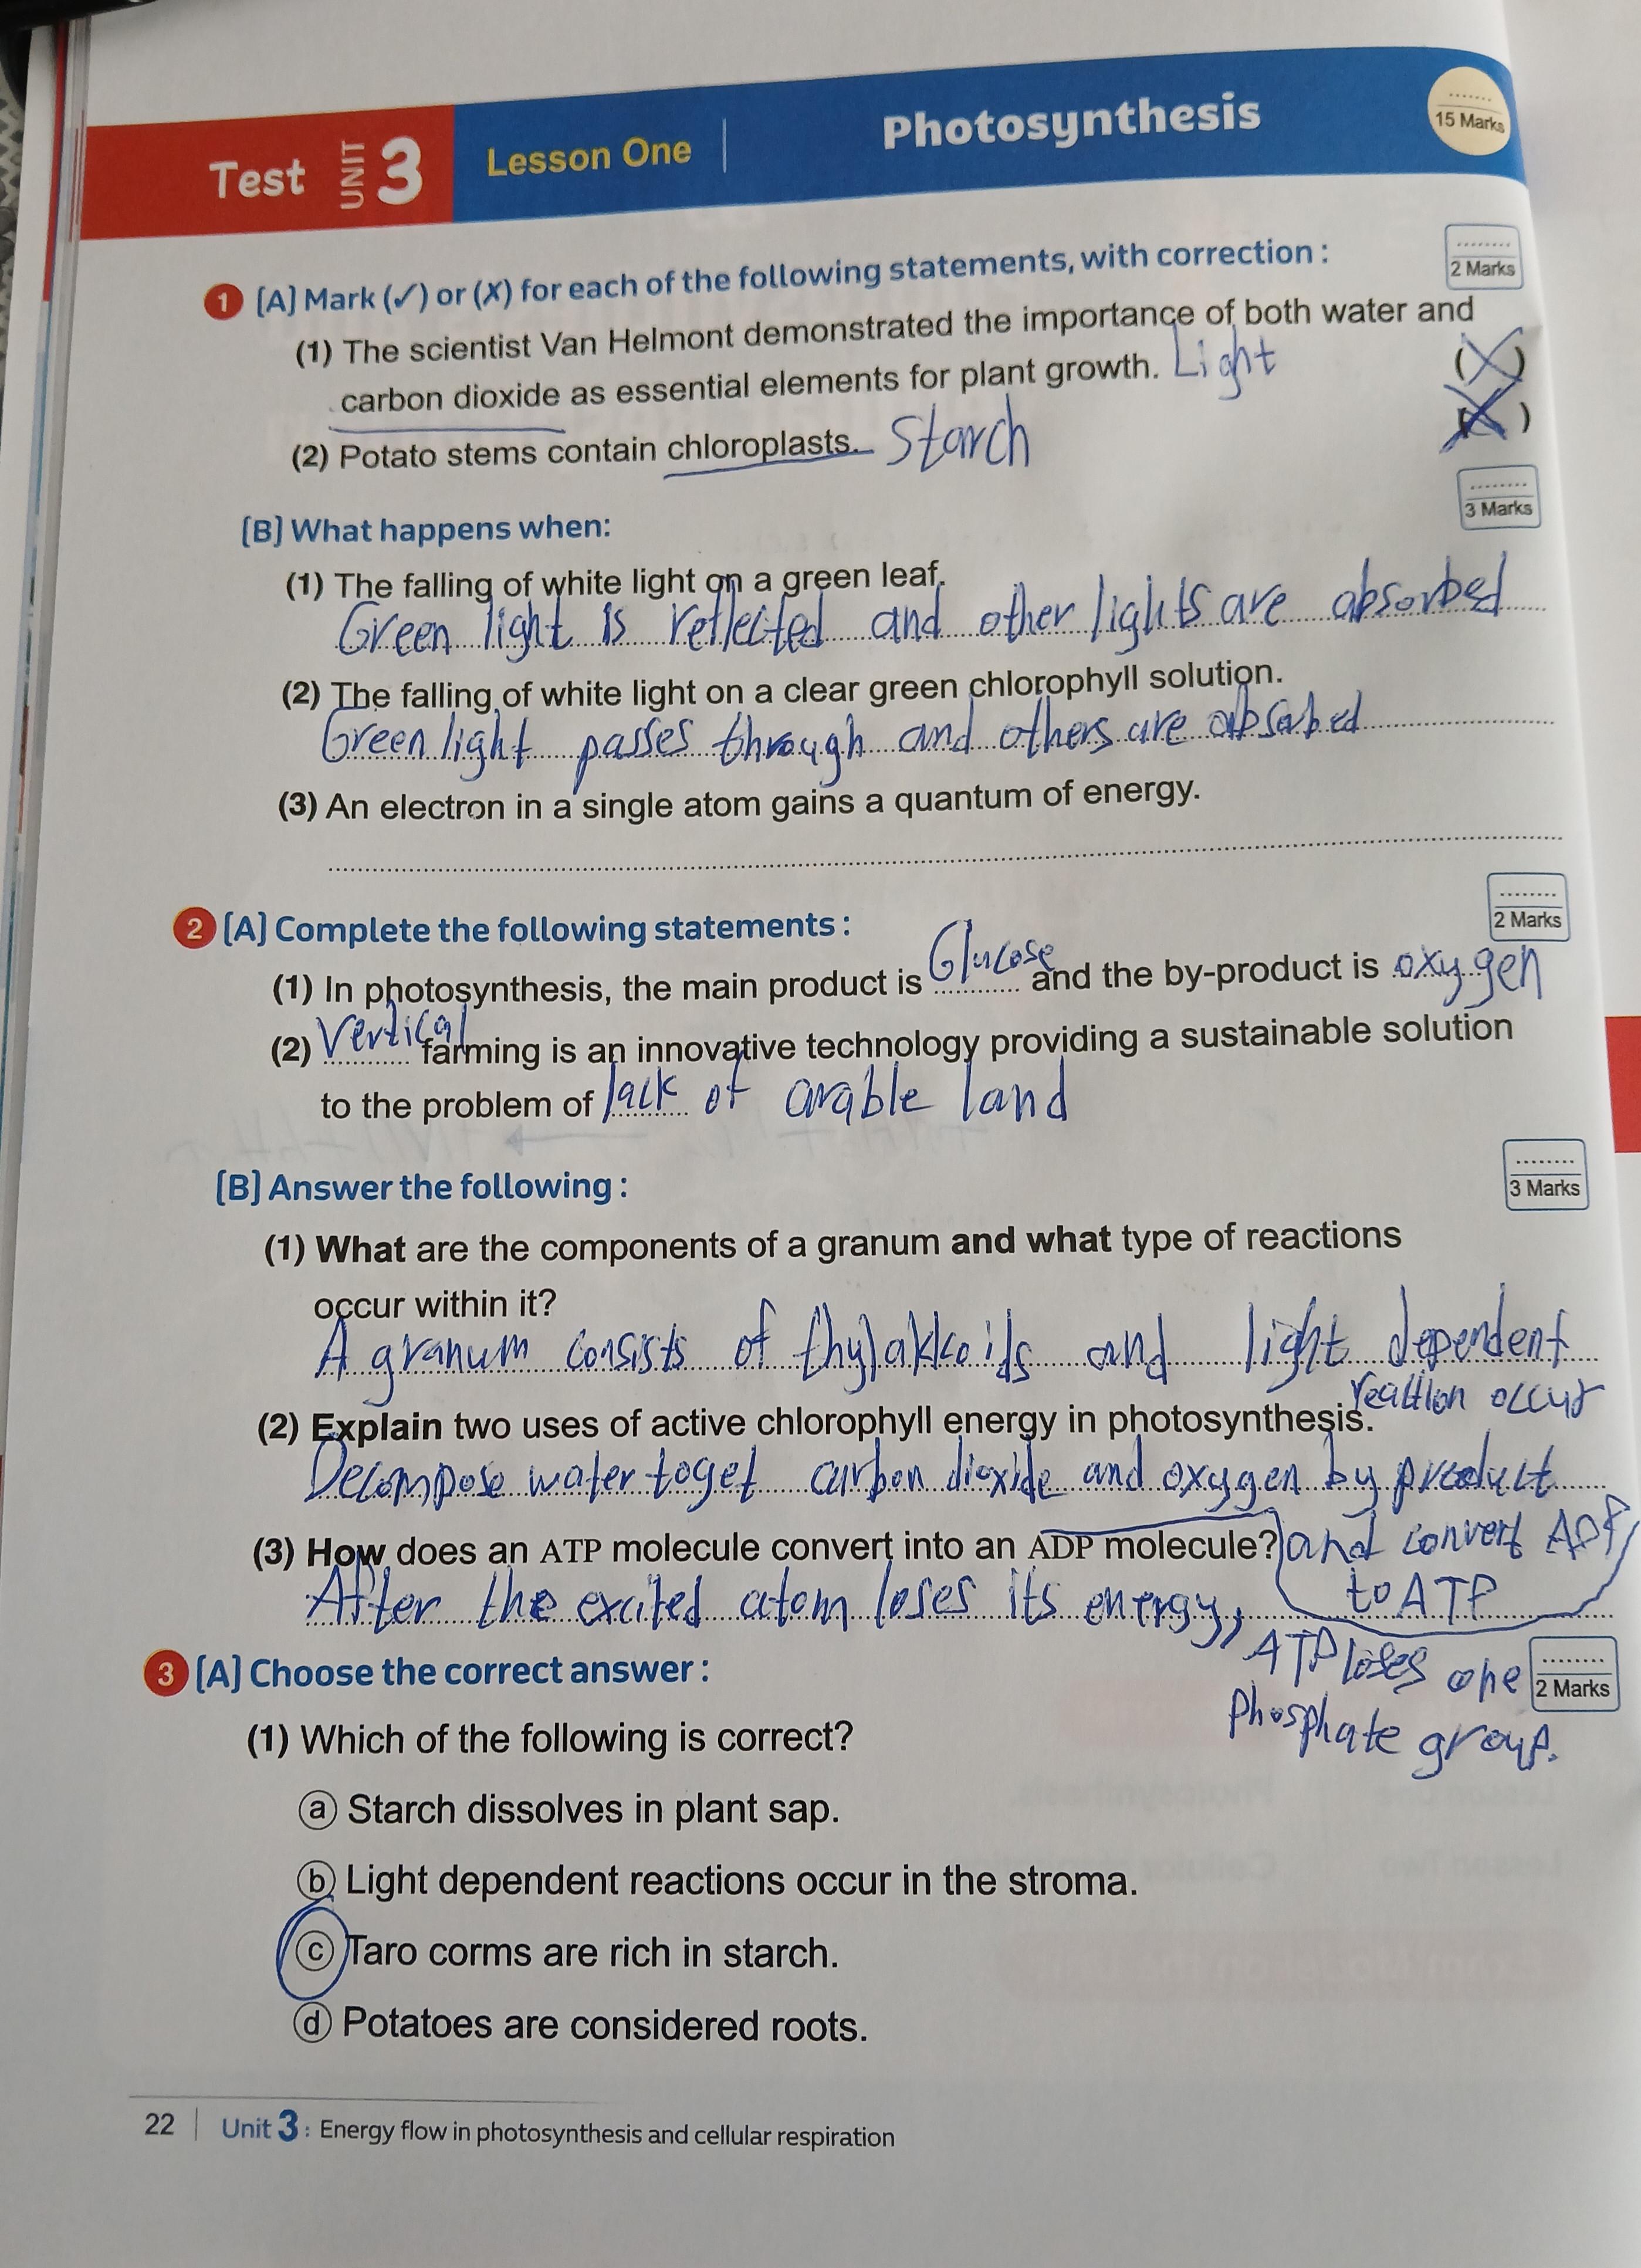 Test UNIT 3 Lesson One Photosynthesis
15 Marks
1 [A] Mark (✓) or (X) for each of the following statements, with correction :
2 Marks
(1) The scientist Van Helmont demonstrated the importance of both water and
carbon dioxide as essential elements for plant growth. Light (X)
(2) Potato stems contain chloroplasts. Starch (X)
3 Marks
[B] What happens when:
(1) The falling of white light on a green leaf.
Green light is reflected and other lights are absorbed
(2) The falling of white light on a clear green chlorophyll solution.
Green light passes through and others are absorbed
(3) An electron in a single atom gains a quantum of energy.
2 [A] Complete the following statements :
2 Marks
(1) In photosynthesis, the main product is Glucose and the by-product is oxygen
(2) Vertical farming is an innovative technology providing a sustainable solution
to the problem of lack of arable land
3 Marks
[B] Answer the following :
(1) What are the components of a granum and what type of reactions
occur within it?
A granum consists of thylakkoids and light dependent
reaction occur
(2) Explain two uses of active chlorophyll energy in photosynthesis.
Decompose water to get carbon dioxide and oxygen by product
and convert ADP
to ATP
(3) How does an ATP molecule convert into an ADP molecule?
After the excited atom loses its energy,
ATP loses one
phosphate group.
3 [A] Choose the correct answer :
2 Marks
(1) Which of the following is correct?
a Starch dissolves in plant sap.
b Light dependent reactions occur in the stroma.
c Taro corms are rich in starch.
d Potatoes are considered roots.
22 | Unit 3 : Energy flow in photosynthesis and cellular respiration